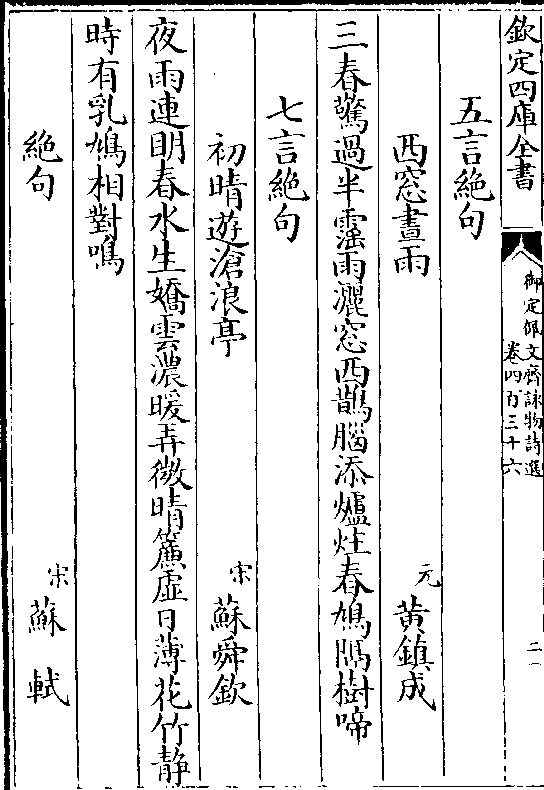 欽定四庫全書
御定佩文齋詠物詩選
卷四百三十六
二
五言絶句
西窓晝雨
元
黄鎮成
三春驚過半靄雨灑窓西鵲腦添爐炷春鳩隔樹啼
七言絶句
初晴遊滄浪亭
宋
蘇舜欽
夜雨連眀春水生嬌雲濃暖弄微晴簾虚日薄花竹静
時有乳鳩相對鳴
絶句
宋
蘇軾